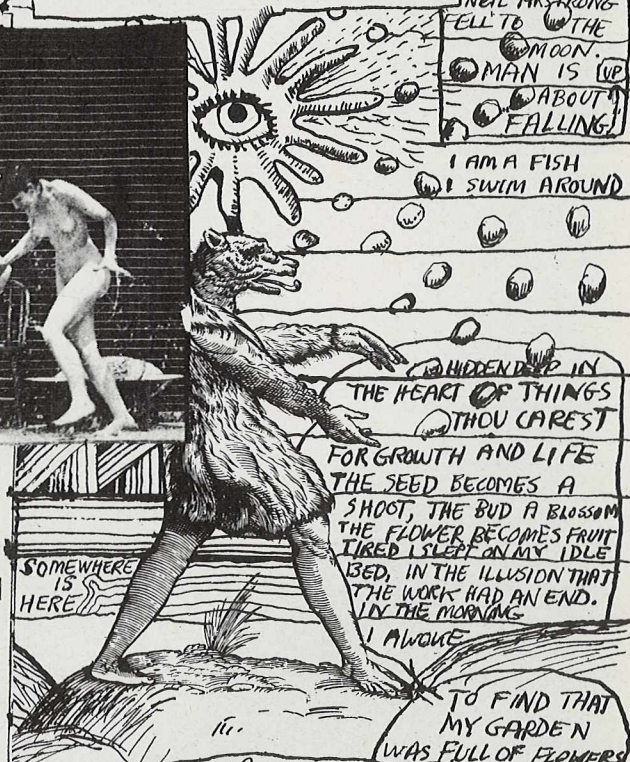 NEIL ARMSTRONG
FELL TO THE
MOON.
MAN IS UP
ABOUT
FALLING!
I AM A FISH
I SWIM AROUND
HIDDEN DEEP IN
THE HEART OF THINGS
THOU CAREST
FOR GROWTH AND LIFE
THE SEED BECOMES A
SHOOT, THE BUD A BLOSSOM
THE FLOWER BECOMES FRUIT
TIRED I SLEPT ON MY IDLE
BED, IN THE ILLUSION THAT
THE WORK HAD AN END.
IN THE MORNING
I AWOKE
SOMEWHERE
IS
HERE
TO FIND THAT
MY GARDEN
WAS FULL OF FLOWERS